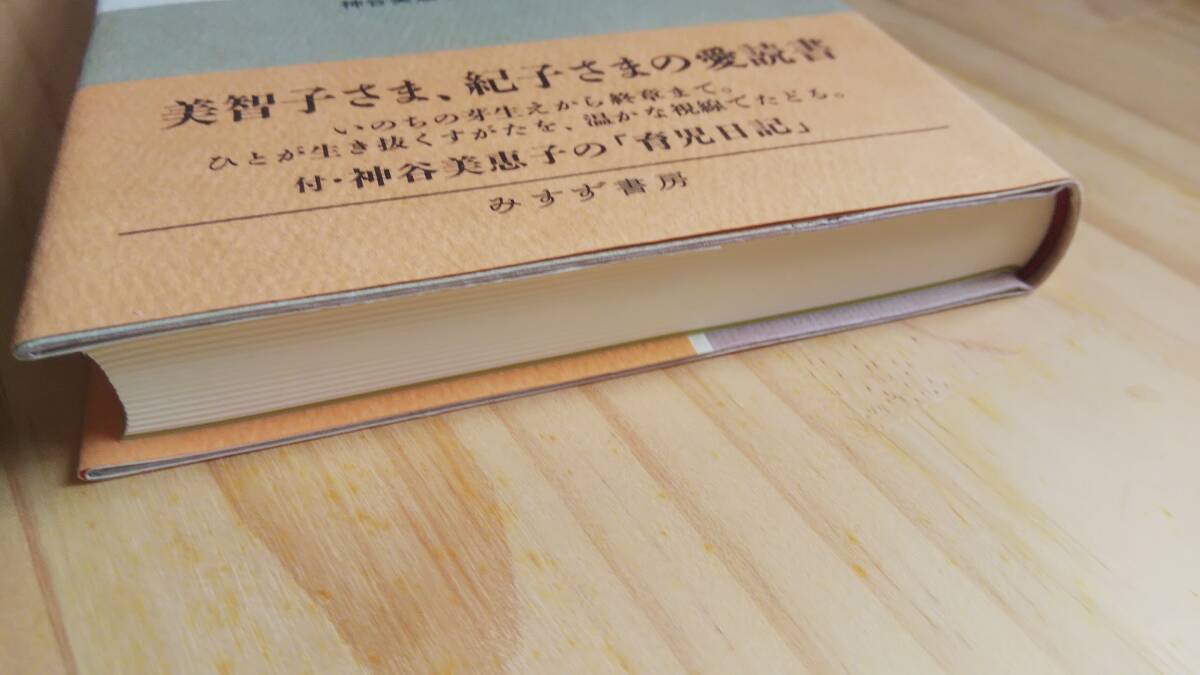 神谷美恵
美智子さま、紀子さまの愛読書
いのちの芽生えから終章まで。
ひとが生き抜くすがたを、温かな視線でたどる。
付・神谷美恵子の「育児日記」
みすず書房